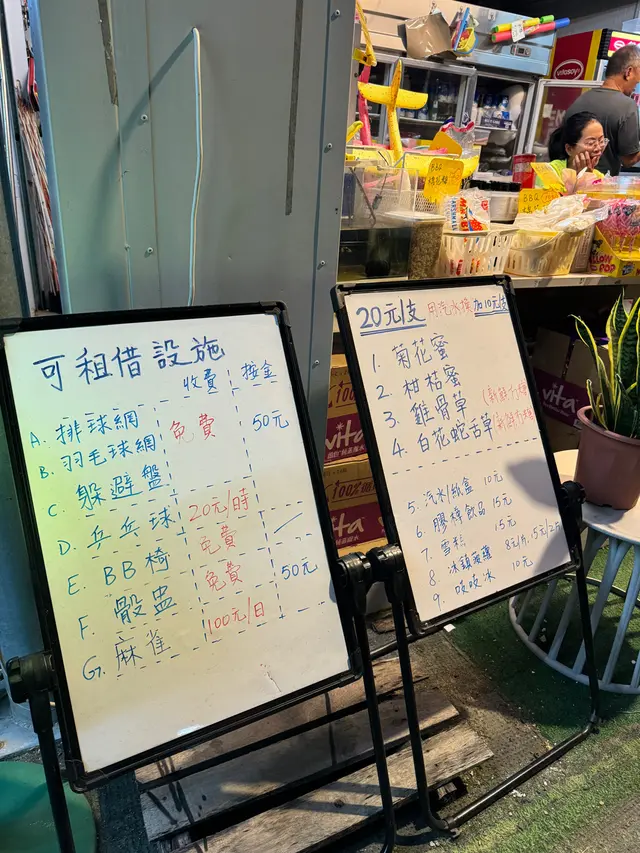 可租借設施
收費 按金
A. 排球網 免費 50元
B. 羽毛球網
C. 躲避盤
D. 乒乓球 20元/時
E. BB椅 免費
F. 骰盅 免費 50元
G. 麻雀 100元/日
20元/支 用汽水換加10元/支
1. 菊花蜜
2. 柑桔蜜
3. 雞骨草 (新鮮
4. 白花蛇舌草 (新鮮
5. 汽水/紙盒 10元
6. 膠樽飲品 15元
7. 雪糕 15元
8. 冰菠蘿 8元/片, 15元/2片
9. 吱吱冰 10元
vitasoy
BBQ
vita
100%
vita